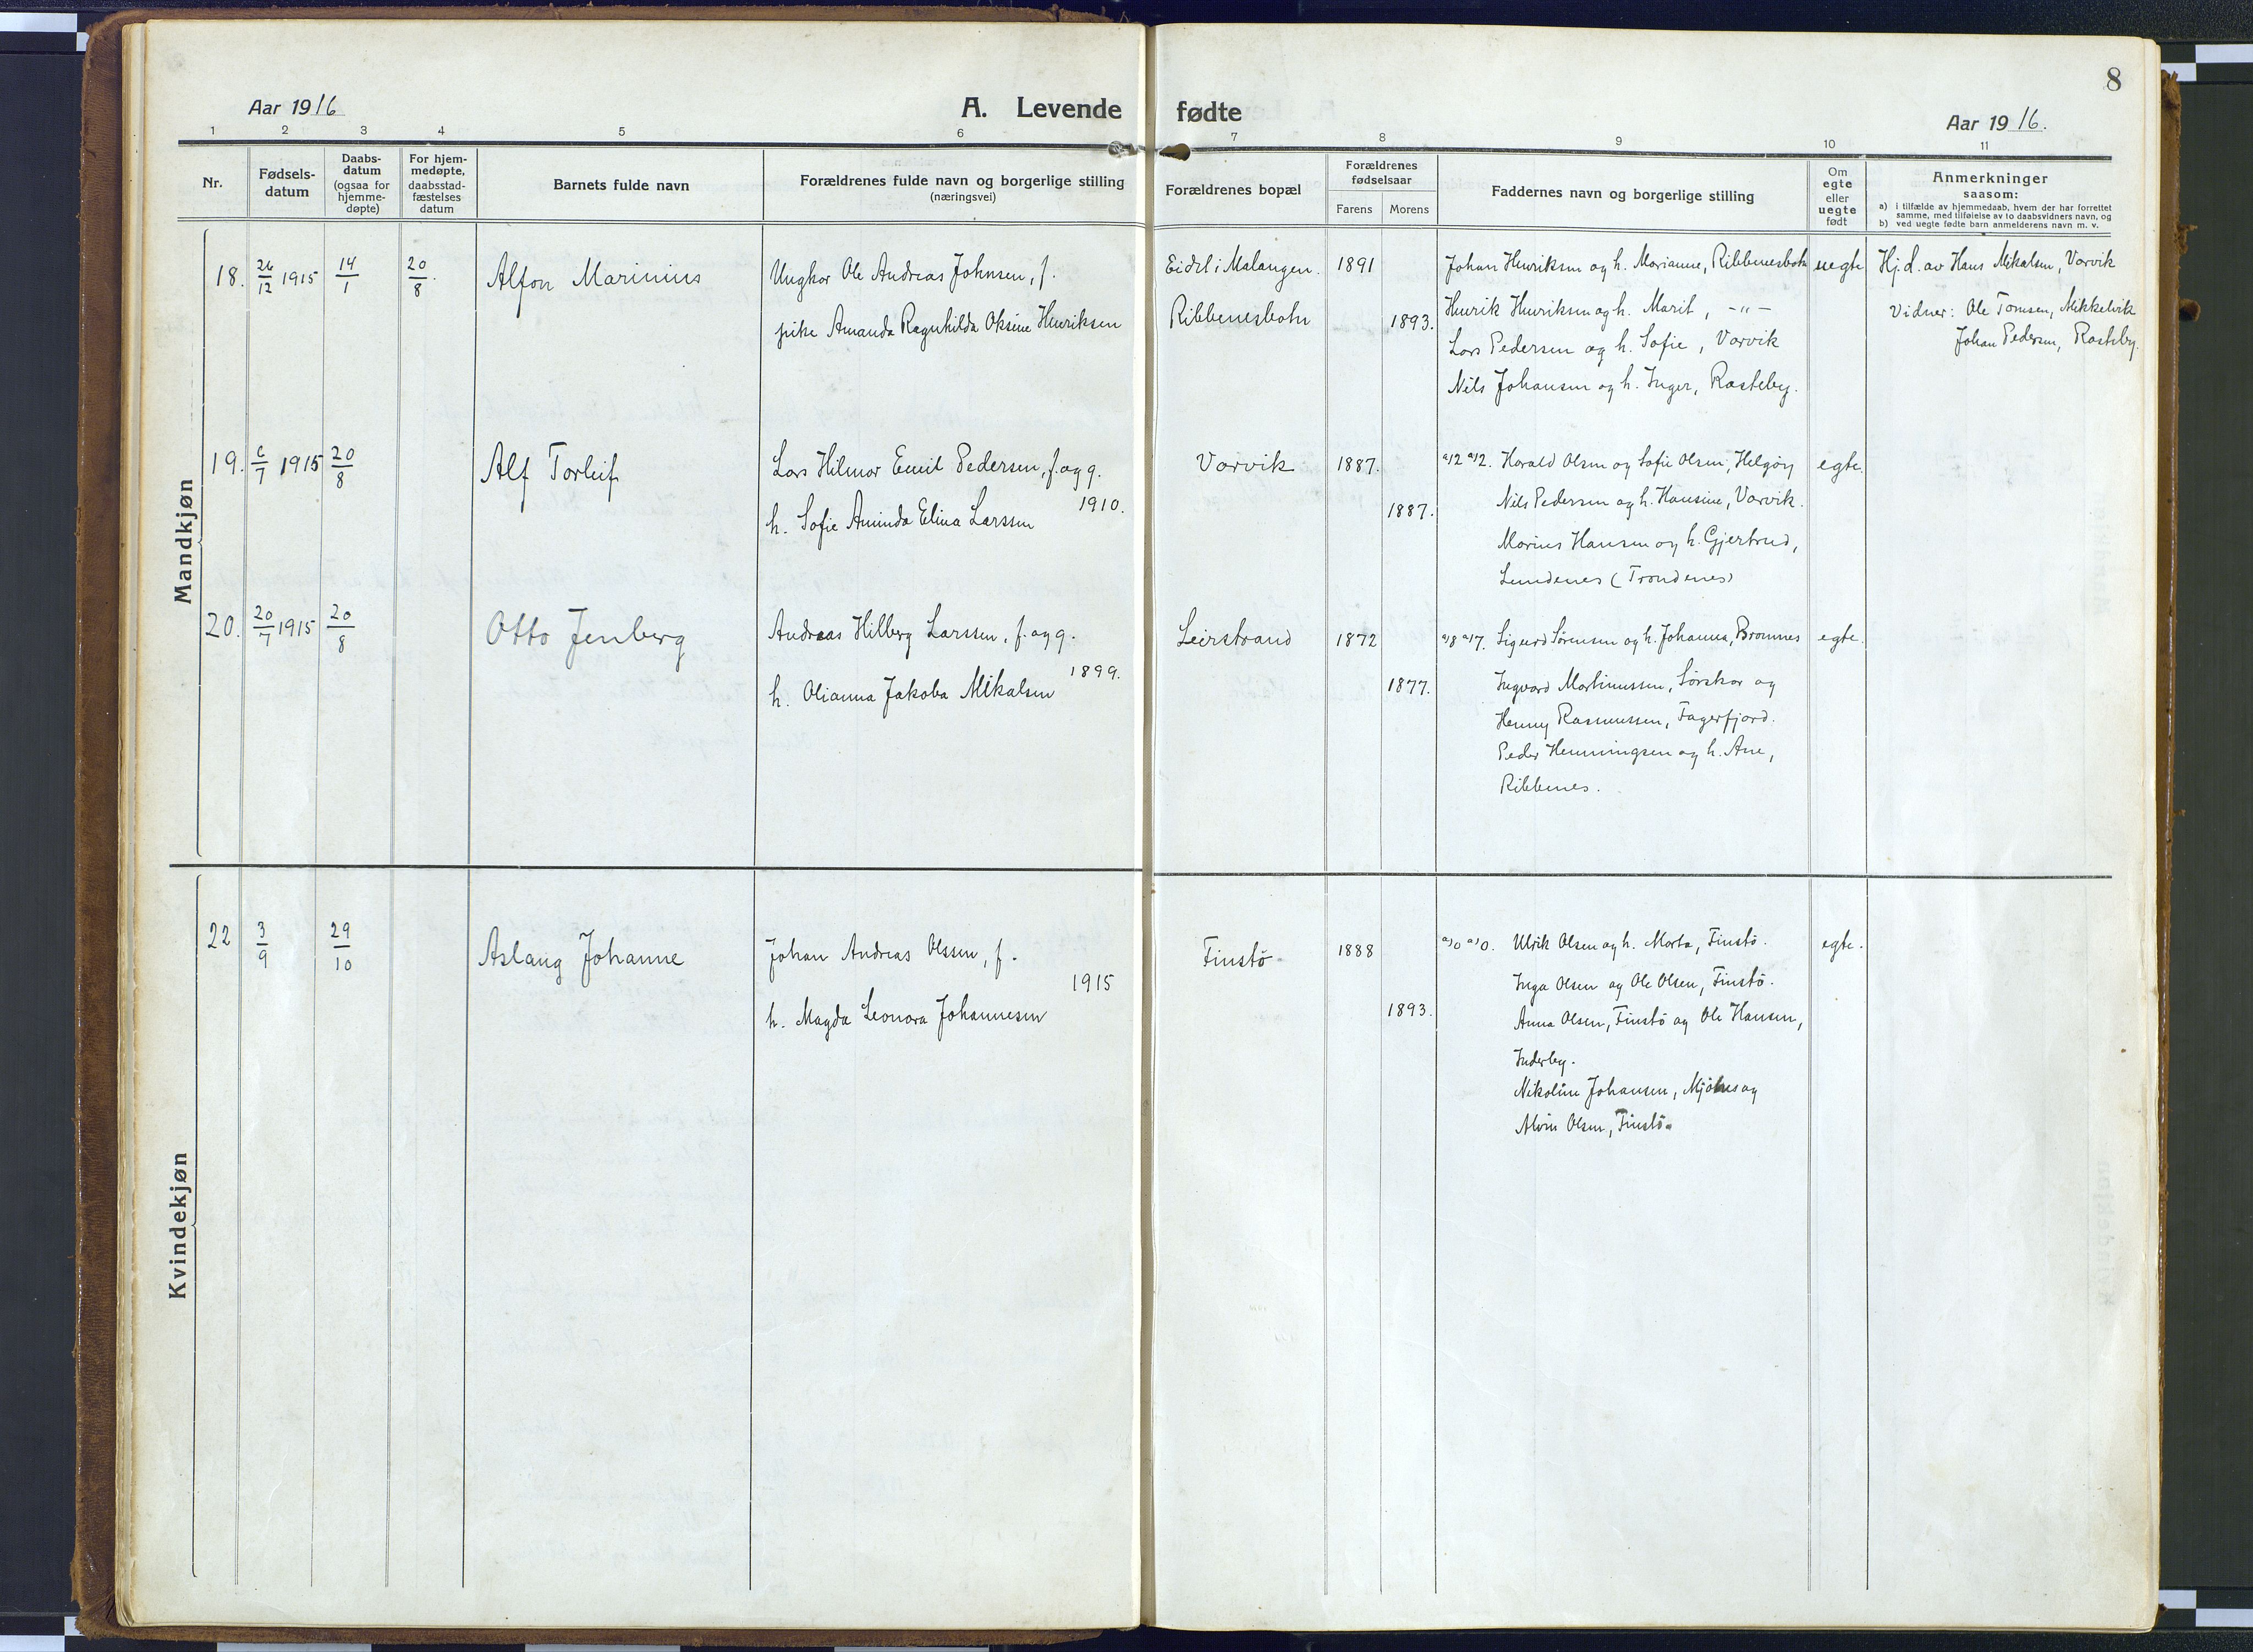 8
Aar 1916
A. Levende fødte
Aar 1916.
1 2 3 4 5 6 7 8 9 10 11
Nr.
Fødsels-
datum
Daabs-
datum
(ogsaa for
hjemme-
døpte)
For hjem-
medøpte,
daabsstad-
fæstelses
datum
Barnets fulde navn
Forældrenes fulde navn og borgerlige stilling
(næringsvei)
Forældrenes bopæl
Forældrenes
fødselsaar
Farens Morens
Faddernes navn og borgerlige stilling
Om
egte
eller
uegte
født
Anmerkninger
saasom:
a) i tilfælde av hjemmedaab, hvem der har forrettet
samme, med tilføielse av to daabsvidners navn, og
b) ved uegte fødte barn anmelderens navn m. v.
Mandkjøn
18. 26/12 1915 14/1 20/8. Alfon Marinius
Ungkar Ole Andreas Johnsen, f.
pike Amanda Ragnhilda Oksine Henriksen
Eidet i Malangen.
Ribbenesbotn
1891
1893.
Johan Henriksen og h. Marianne, Ribbenesbotn
Henrik Henriksen og h. Marit, -"-
Lars Pedersen og h. Sofie, Varvik
Nils Johansen og h. Inger, Rasteby.
uegte
Hj. d. av Hans Mikalsen, Varvik
Vidner: Ole Tomsen, Mikkelvik
Johan Pedersen, Rasteby.
19. 6/7 1915 20/8 Alf Torleif
Lars Hilmar Emil Pedersen, f. og g.
1910.
h. Sofie Aminda Elina Larssen
Varvik
1887.
1887.
a/12 a/12. Harald Olsen og Sofie Olsen, Helgøy
Nils Pedersen og h. Hansine, Varvik.
Marius Hansen og h. Gjertrud,
Lundenes (Trondenes)
egte.
20. 20/7 1915 20/8 Otto Jenberg
Andreas Hilberg Larssen, f. og g.
1899.
h. Olianna Jakoba Mikalsen
Leirstrand
1872
1877.
a/8 a/7. Sigurd Sørensen og h. Johanna, Bromnes
Ingvard Martinussen, Sørskar og
Henny Rasmussen, Fagerfjord.
Peder Henningsen og h. Ane,
Ribbenes.
egte.
Kvindekjøn
22 3/9 29/10 Aslaug Johanne
Johan Andreas Olssen, f.
1915
h. Magda Leonora Johannesen
Finstö
1888
1893.
a/0 a/0. Ulrik Olsen og h. Marta, Finstö.
Inga Olsen og Ole Olsen, Finstö.
Anna Olsen, Finstö og Ole Hansen,
Inderby.
Nikoline Johansen, Mjölnes og
Alvin Olsen, Finstö.
egte.